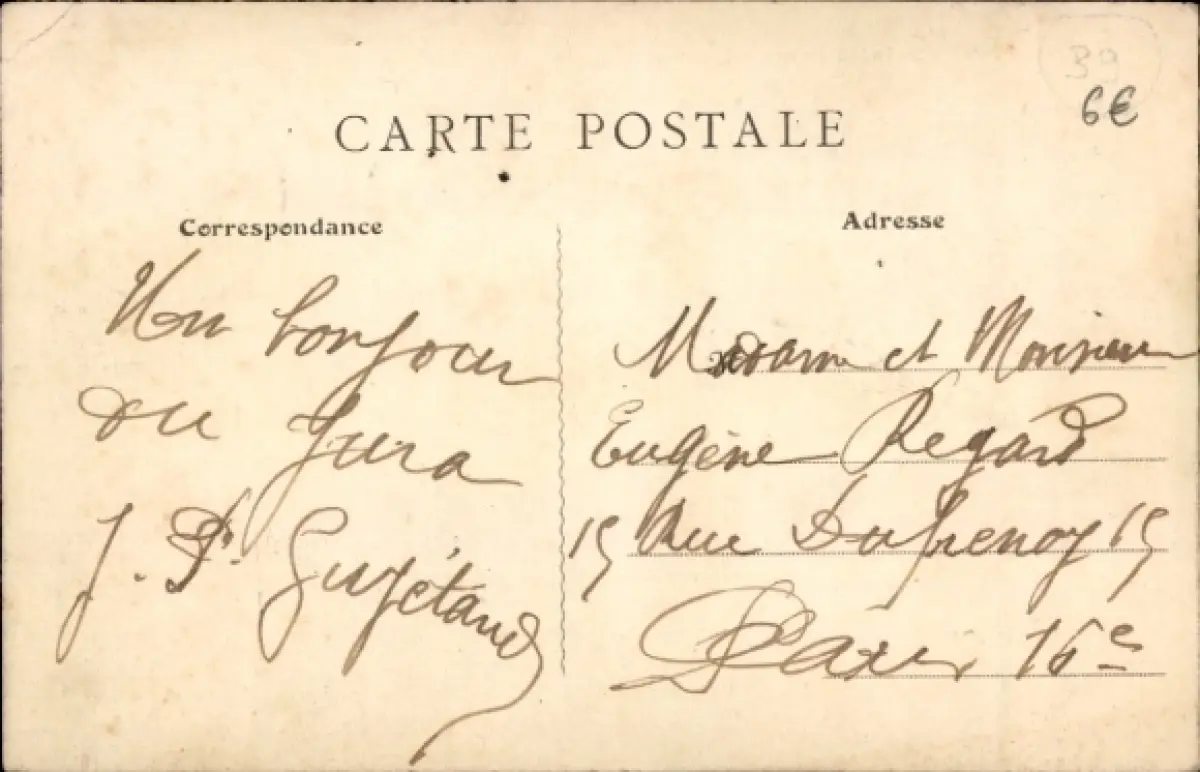 39
6€
CARTE POSTALE
Correspondance
Un bonjour
du Jura
J. Pt. Guyétand
Adresse
Madame et Monsieur
Eugène Regard
15 Rue Dufrenoy 15
Paris 16e